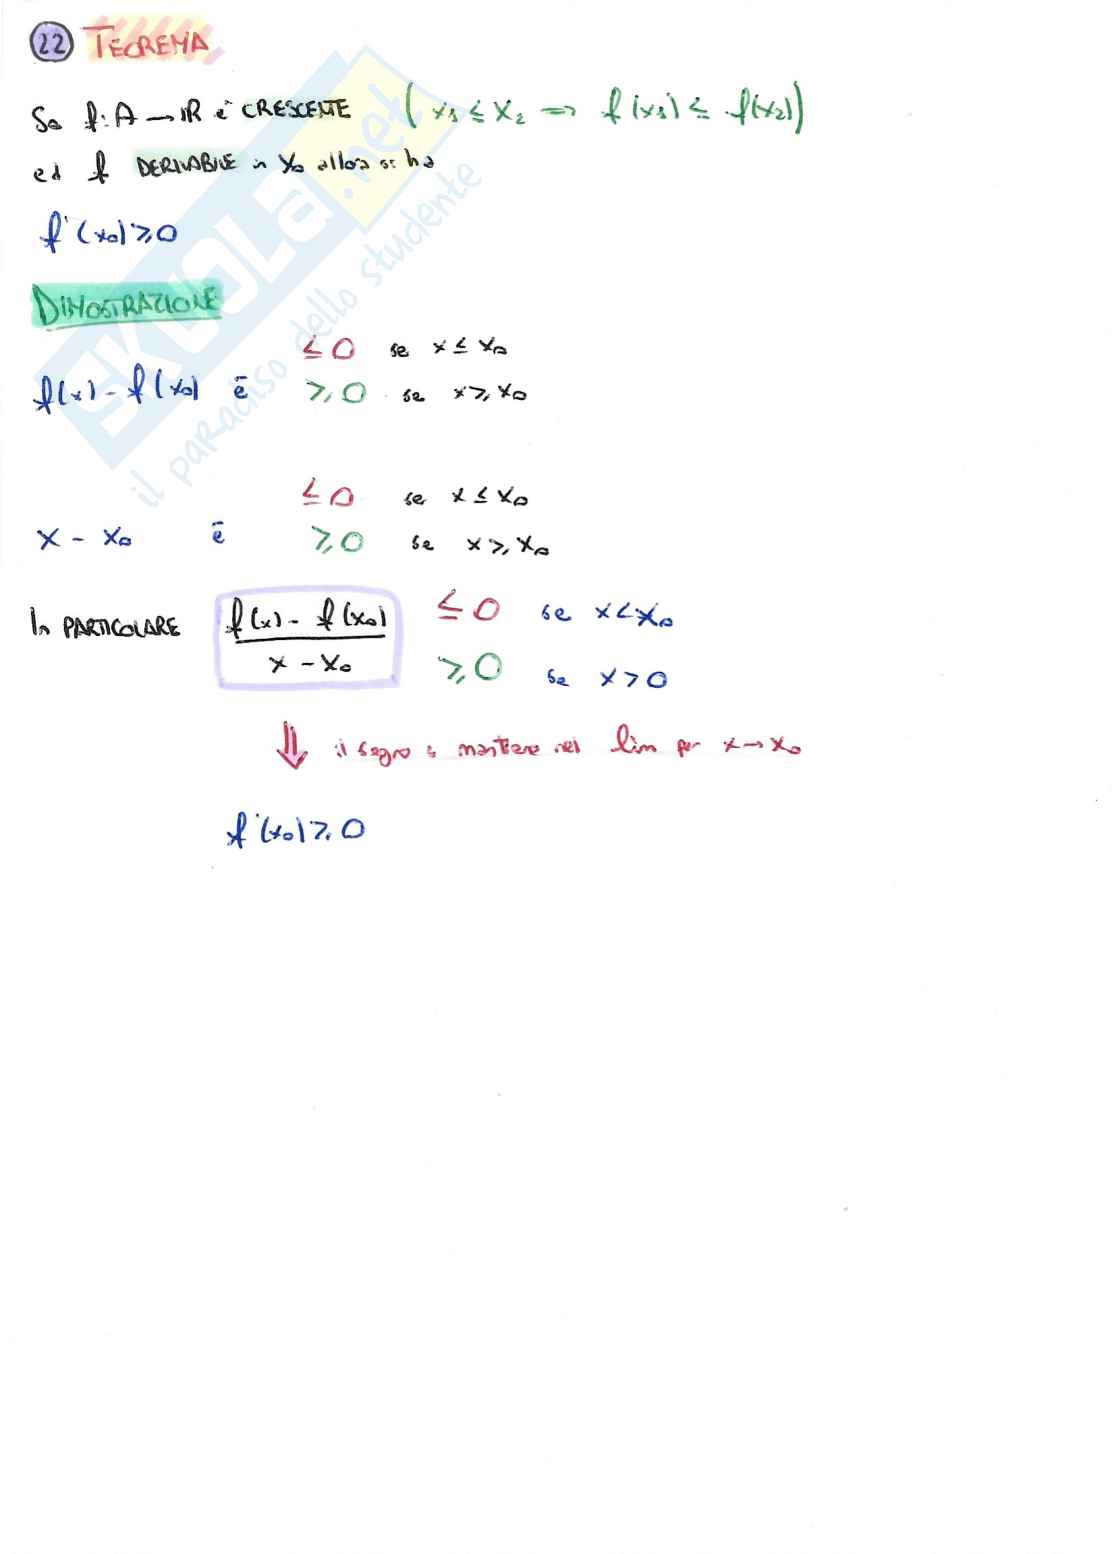 22 TEOREMA
Se f: A → IR è CRESCENTE ( x1 ≤ x2 ⇒ f(x1) ≤ f(x2))
ed f DERIVABILE in x0 allora si ha
f'(x0) ≥ 0
DIMOSTRAZIONE
≤ 0 se x ≤ x0
f(x) - f(x0) è ≥ 0 se x ≥ x0
≤ 0 se x ≤ x0
x - x0 è ≥ 0 se x ≥ x0
In PARTICOLARE f(x) - f(x0) ≤ 0 se x < x0
x - x0 ≥ 0 se x > 0
⇓ il segno si mantiene nel lim per x → x0
f'(x0) ≥ 0
SKUOLA.net
il paradiso dello studente